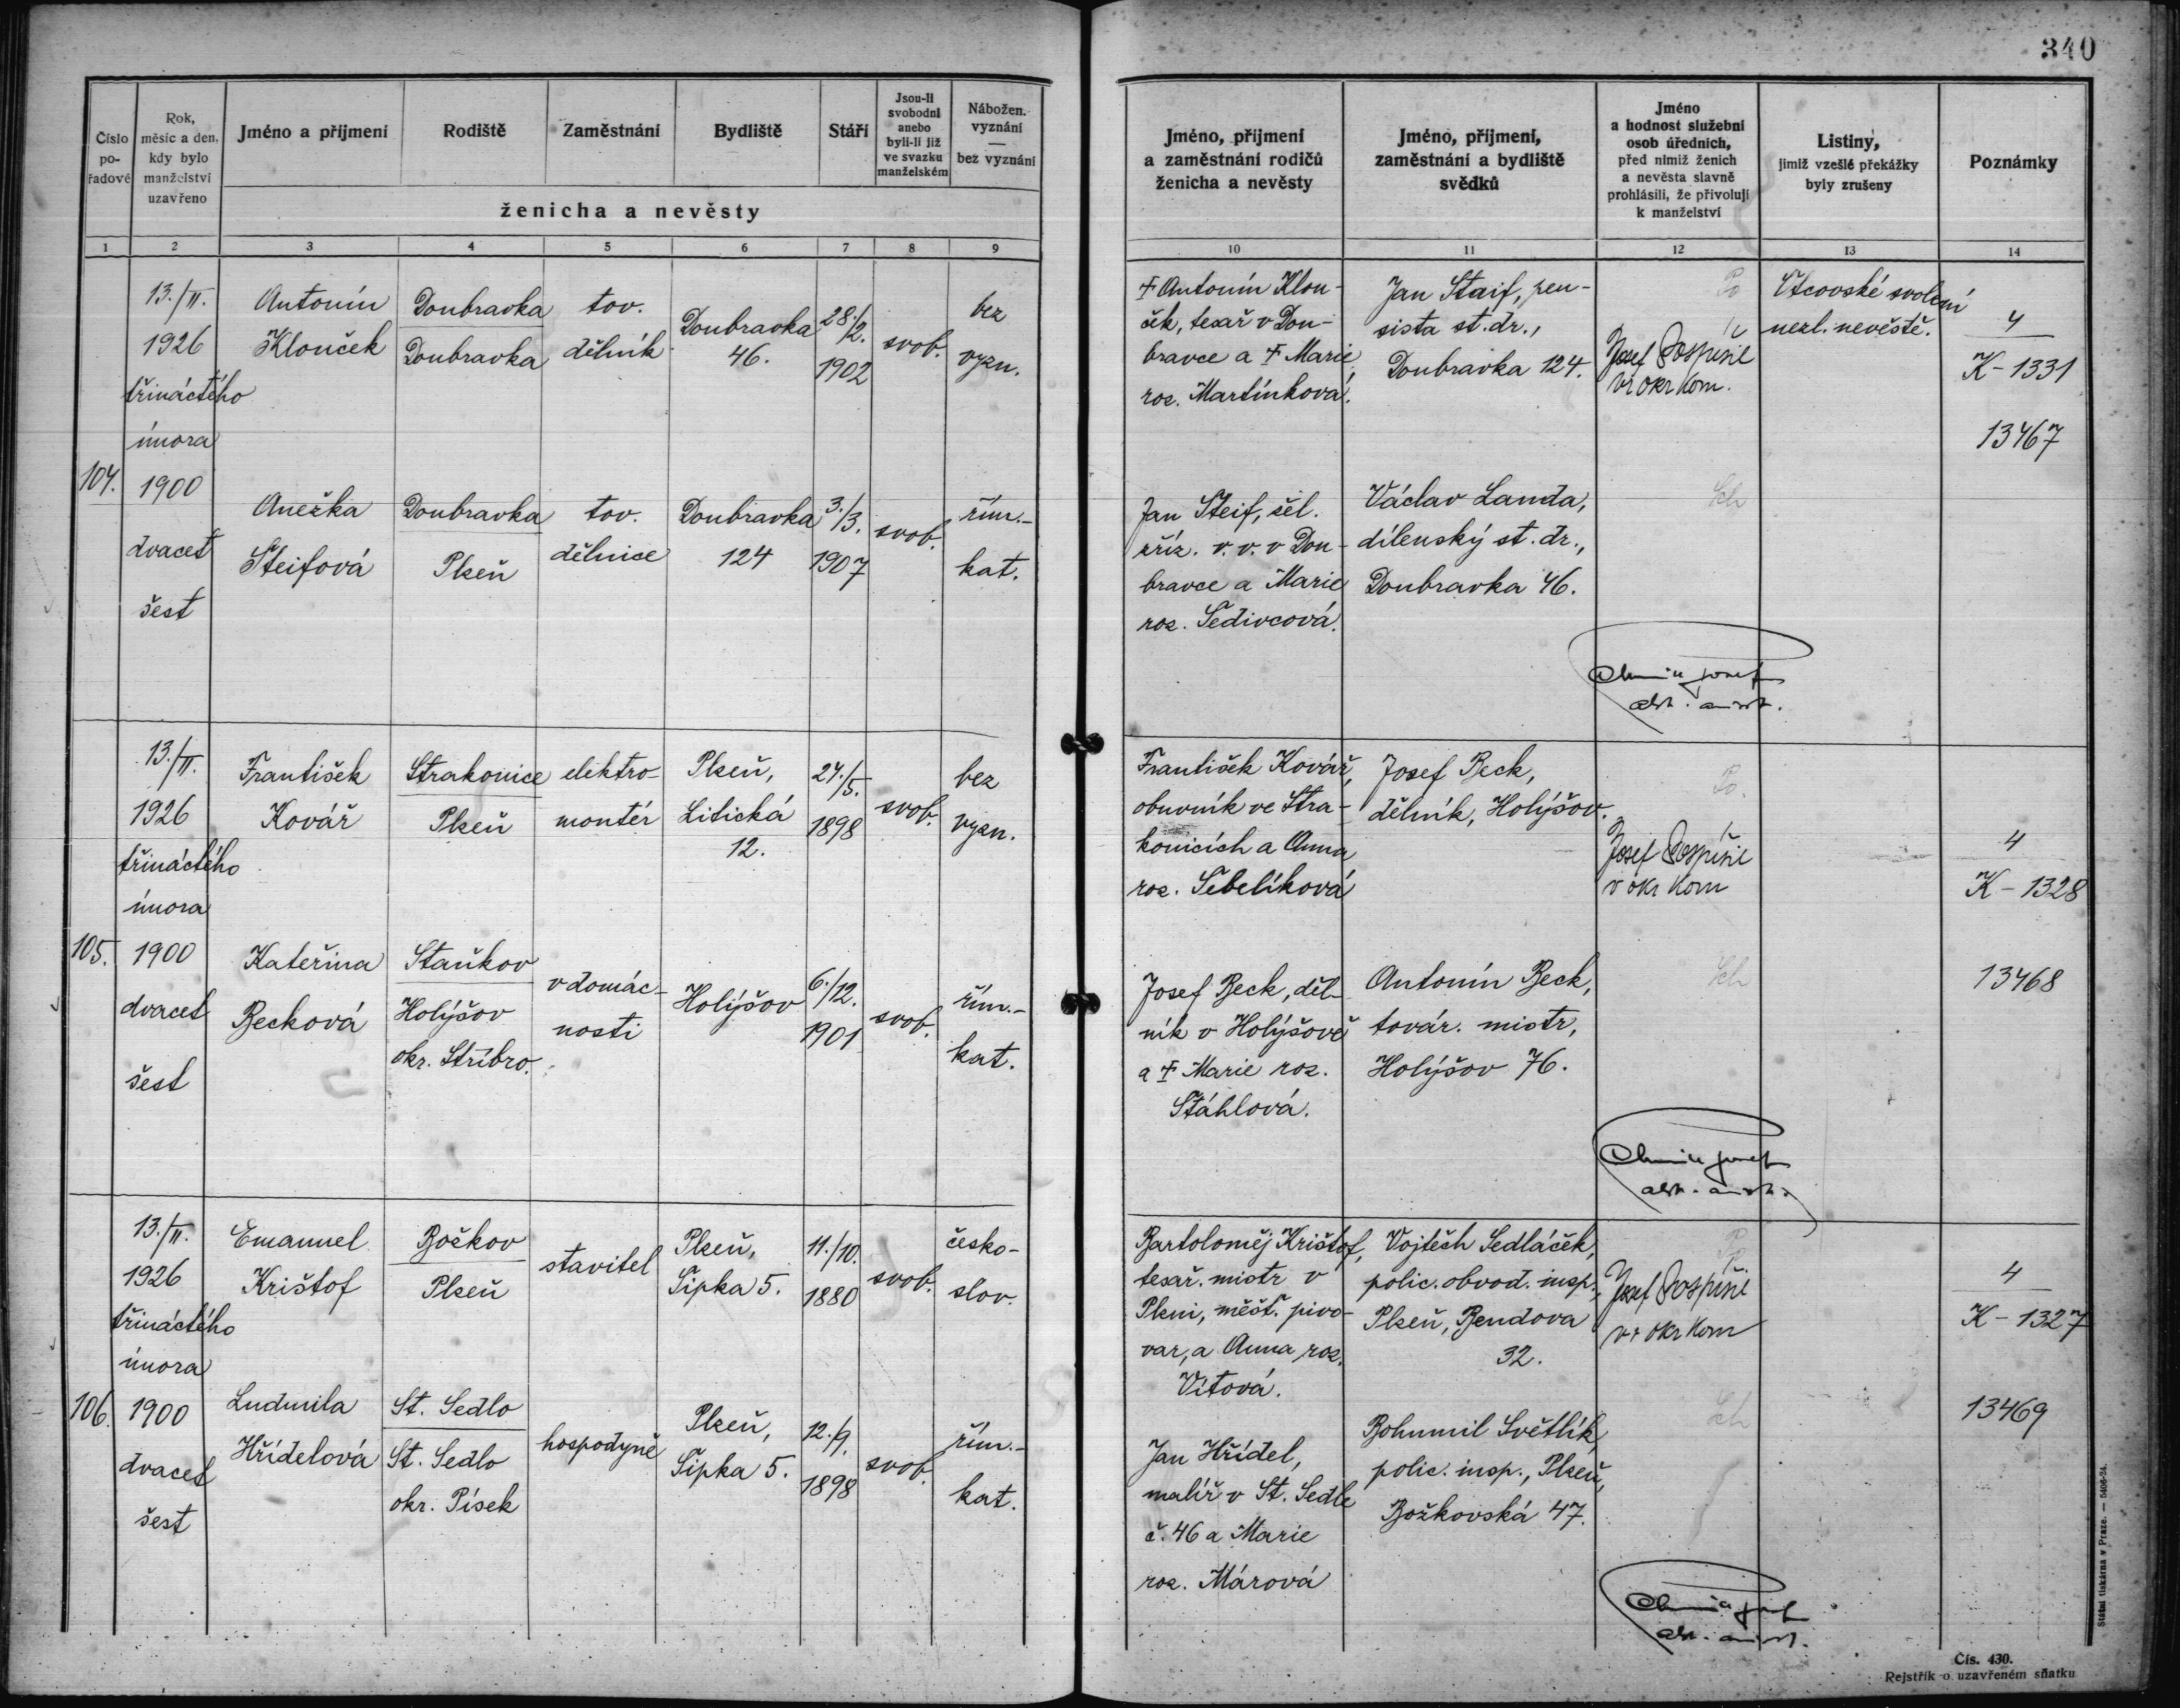 340
Číslo
po-
řadové
Rok,
měsíc a den,
kdy bylo
manželství
uzavřeno
Jméno a příjmení
Rodiště
Zaměstnání
Bydliště
Stáří
Jsou-li
svobodni
anebo
byli-li již
ve svazku
manželském
Nábožen.
vyznání
—
bez vyznání
ženicha a nevěsty
Jméno, příjmení
a zaměstnání rodičů
ženicha a nevěsty
Jméno, příjmení,
zaměstnání a bydliště
svědků
Jméno
a hodnost služební
osob úředních,
před nimiž ženich
a nevěsta slavně
prohlásili, že přivolují
k manželství
Listiny,
jimiž vzešlé překážky
byly zrušeny
Poznámky
1 2 3 4 5 6 7 8 9 10 11 12 13 14
104.
13./II.
1926
třináctého
února
1900
dvacet
šest
Antonín
Klouček
Doubravka
Doubravka
tov.
dělník
Doubravka
46.
28./2.
1902
svob.
bez
vyzn.
Anežka
Steifová
Doubravka
Plzeň
tov.
dělnice
Doubravka
124
3./3.
1907
svob.
řím.-
kat.
† Antonín Klou-
ček, tesař v Dou-
bravce a † Marie
roz. Martínková.
Jan Steif, žel.
zříz. v. v. v Dou-
bravce a Marie
roz. Šedivcová.
Jan Staif, pen-
sista st. dr.,
Doubravka 124.
Václav Landa,
dílenský st. dr.,
Doubravka 46.
Po
Josef Pospíšil
vr okr kom.
Sch
Otcovské svolení
nezl. nevěstě.
4
K-1331
13467
105.
13./II.
1926
třináctého
února
1900
dvacet
šest
František
Kovář
Strakonice
Plzeň
elektro-
montér
Plzeň,
Litická
12.
24./5.
1898
svob.
bez
vyzn.
Kateřina
Becková
Staňkov
Holýšov
okr. Stříbro.
v domác-
nosti
Holýšov
6./12.
1901
svob.
řím.-
kat.
František Kovář,
obuvník ve Stra-
konicích a Anna
roz. Šebelíková
Josef Beck, děl-
ník v Holýšově
a † Marie roz.
Stáhlová.
Josef Beck,
dělník, Holýšov.
Antonín Beck,
továr. mistr,
Holýšov 76.
Po.
Josef Pospíšil
v okr kom
Sch
4
K-1328
13468
106.
13./II.
1926
třináctého
února
1900
dvacet
šest
Emanuel
Krištof
Božkov
Plzeň
stavitel
Plzeň,
Šipka 5.
11./10.
1880
svob.
česko-
slov.
Ludmila
Hřídelová
St. Sedlo
St. Sedlo
okr. Písek
hospodyně
Plzeň,
Šipka 5.
12./9.
1898
svob.
řím.-
kat.
Bartoloměj Krištof,
tesař. mistr v
Plzni, měšť. pivo-
var, a Anna roz.
Vítová.
Jan Hřídel,
malíř v St. Sedle
č. 46 a Marie
roz. Márová
Vojtěch Sedláček,
polic. obvod. insp.,
Plzeň, Bendova
32.
Bohumil Světlík,
polic. insp., Plzeň,
Božkovská 47.
Josef Pospíšil
vr okr kom
Sch
4
K-1327
13469
Státní tiskárna v Praze. — 5406-24.
Čís. 430.
Rejstřík o uzavřeném sňatku